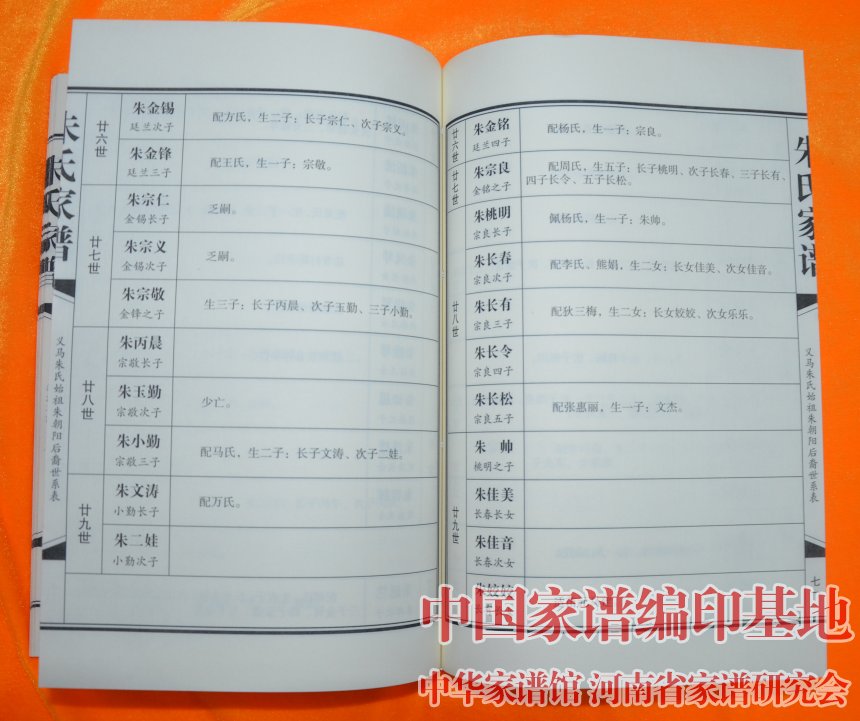 朱氏家谱
义马朱氏始祖朱朝阳后裔世系表
廿六世
朱金锡
廷兰次子
配方氏，生二子：长子宗仁、次子宗义。
朱金锋
廷兰三子
配王氏，生一子：宗敬。
廿七世
朱宗仁
金锡长子
乏嗣。
朱宗义
金锡次子
乏嗣。
朱宗敬
金锋之子
生三子：长子丙晨、次子玉勤、三子小勤。
廿八世
朱丙晨
宗敬长子
朱玉勤
宗敬次子
少亡。
朱小勤
宗敬三子
配马氏，生二子：长子文涛、次子二娃。
廿九世
朱文涛
小勤长子
配万氏。
朱二娃
小勤次子
廿六世
朱金铭
廷兰四子
配杨氏，生一子：宗良。
廿七世
朱宗良
金铭之子
配周氏，生五子：长子桃明、次子长春、三子长有、
四子长令、五子长松。
廿八世
朱桃明
宗良长子
佩杨氏，生一子：朱帅。
朱长春
宗良次子
配李氏、熊娟，生二女：长女佳美、次女佳音。
朱长有
宗良三子
配狄三梅，生二女：长女姣姣、次女乐乐。
朱长令
宗良四子
朱长松
宗良五子
配张惠丽，生一子：文杰。
廿九世
朱 帅
桃明之子
朱佳美
长春长女
朱佳音
长春次女
朱姣姣
朱氏家谱
义马朱氏始祖朱朝阳后裔世系表
中国家谱编印基地
中华家谱馆 河南省家谱研究会